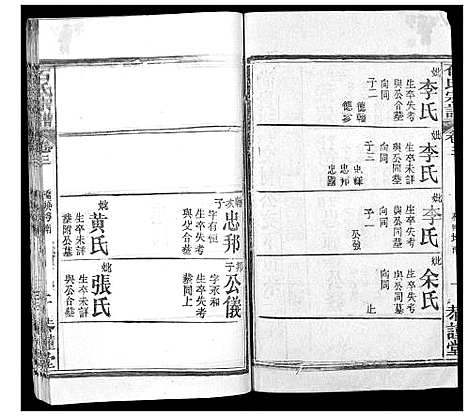 石氏宗譜
卷三
妣李氏
生卒失考
與公合墓
向同
子二
德翰
德珍
妣李氏
生卒未詳
與公合墓
向同
子三
忠輝
忠邦
忠國
妣李氏
生卒失考
與公同墓
向同
子一
公強
妣余氏
生卒失考
與公同墓
向同
止
恭謹堂
石氏宗譜
卷三
次子忠邦
字有恒
生卒失考
與父合墓
妣黃氏
生卒未詳
墓附公墓
邦子公儀
字承和
生卒失考
墓同上
妣張氏
生卒未詳
與公合墓